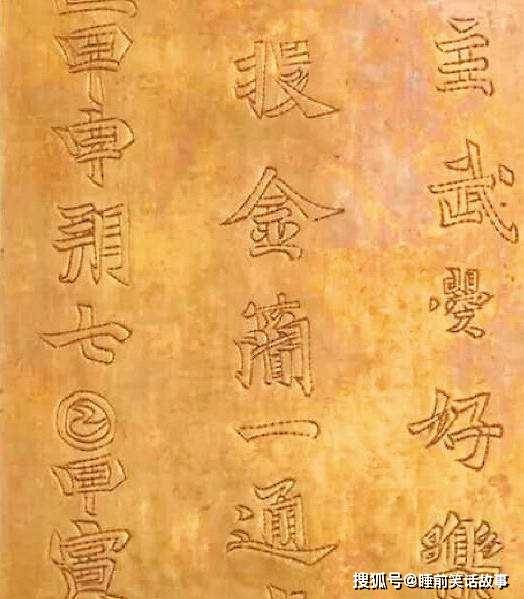 主武曌好樂
投金簡一通
甲申朔七𡆠甲寅
搜狐号@睡前笑话故事